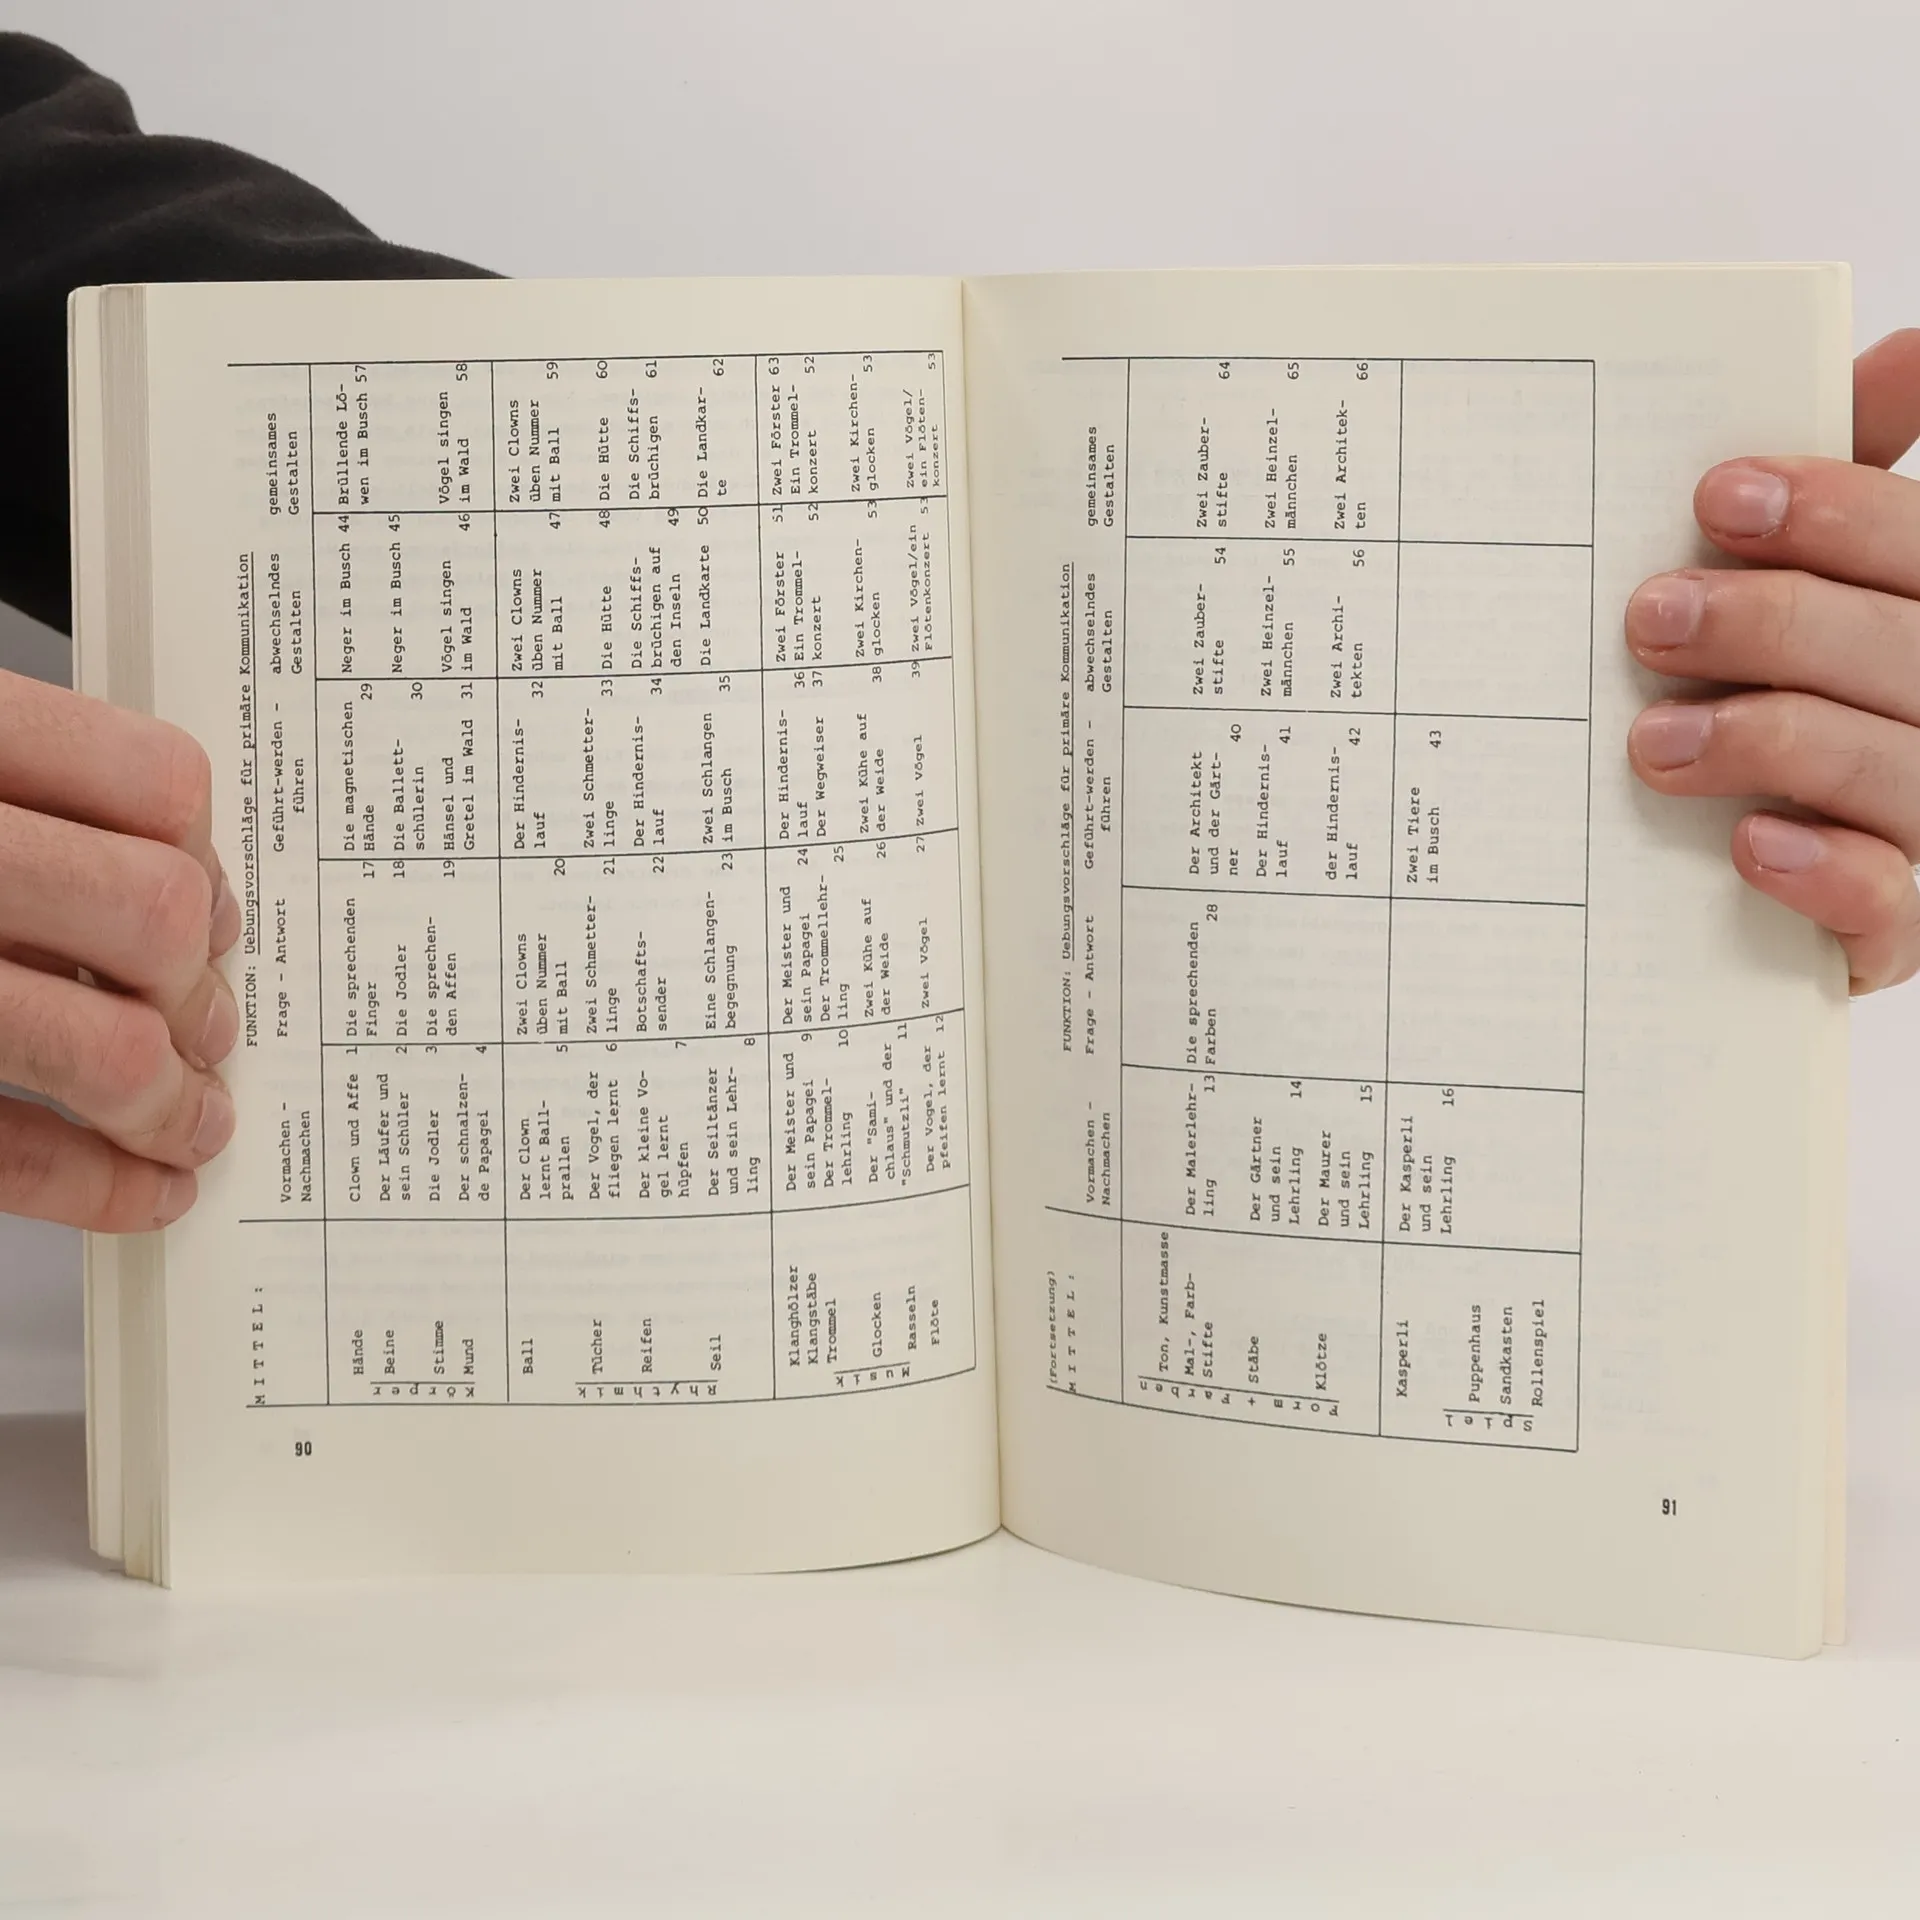 FUNKTION: Uebungsvorschläge für primäre Kommunikation
MITTEL:
Vormachen -
Nachmachen
Frage - Antwort
Geführt-werden -
führen
abwechselndes
Gestalten
gemeinsames
Gestalten
Körper
Hände
Beine
Stimme
Mund
Clown und Affe 1
Der Läufer und
sein Schüler 2
Die Jodler 3
Der schnalzen-
de Papagei 4
Die sprechenden
Finger 17
Die Jodler 18
Die sprechen-
den Affen 19
Die magnetischen
Hände 29
Die Ballett-
schülerin 30
Hänsel und
Gretel im Wald 31
Neger im Busch 44
Neger im Busch 45
Vögel singen
im Wald 46
Brüllende Lö-
wen im Busch 57
Vögel singen
im Wald 58
Rhythmik
Ball
Tücher
Reifen
Seil
Der Clown
lernt Ball-
prallen 5
Der Vogel, der
fliegen lernt 6
Der kleine Vo-
gel lernt
hüpfen 7
Der Seiltänzer
und sein Lehr-
ling 8
Zwei Clowns
üben Nummer
mit Ball 20
Zwei Schmetter-
linge 21
Botschafts-
sender 22
Eine Schlangen-
begegnung 23
Der Hindernis-
lauf 32
Zwei Schmetter-
linge 33
Der Hindernis-
lauf 34
Zwei Schlangen
im Busch 35
Zwei Clowns
üben Nummer
mit Ball 47
Die Hütte 48
Die Schiffs-
brüchigen auf
den Inseln 49
Die Landkarte 50
Zwei Clowns
üben Nummer
mit Ball 59
Die Hütte 60
Die Schiffs-
brüchigen 61
Die Landkar-
te 62
Musik
Klanghölzer
Klangstäbe
Trommel
Glocken
Rasseln
Flöte
Der Meister und
sein Papagei 9
Der Trommel-
lehrling 10
Der "Sami-
chlaus" und der
"Schmutzli" 11
Der Vogel, der
pfeifen lernt 12
Der Meister und
sein Papagei 24
Der Trommellehr-
ling 25
Zwei Kühe auf
der Weide 26
Zwei Vögel 27
Der Hindernis-
lauf 36
Der Wegweiser 37
Zwei Kühe auf
der Weide 38
Zwei Vögel 39
Zwei Förster 51
Ein Trommel-
konzert 52
Zwei Kirchen-
glocken 53
Zwei Vögel/ein
Flötenkonzert 53
Zwei Förster 63
Ein Trommel-
konzert 52
Zwei Kirchen-
glocken 53
Zwei Vögel/
ein Flöten-
konzert 53
90
(Fortsetzung)
FUNKTION: Uebungsvorschläge für primäre Kommunikation
MITTEL:
Vormachen -
Nachmachen
Frage - Antwort
Geführt-werden -
führen
abwechselndes
Gestalten
gemeinsames
Gestalten
Form + Farben
Ton, Kunstmasse
Mal-, Farb-
Stifte
Stäbe
Klötze
Der Malerlehr-
ling 13
Der Gärtner
und sein
Lehrling 14
Der Maurer
und sein
Lehrling 15
Die sprechenden
Farben 28
Der Architekt
und der Gärt-
ner 40
Der Hindernis-
lauf 41
der Hindernis-
lauf 42
Zwei Zauber-
stifte 54
Zwei Heinzel-
männchen 55
Zwei Archi-
tekten 56
Zwei Zauber-
stifte 64
Zwei Heinzel-
männchen 65
Zwei Architek-
ten 66
Spiel
Kasperli
Puppenhaus
Sandkasten
Rollenspiel
Der Kasperli
und sein
Lehrling 16
Zwei Tiere
im Busch 43
91